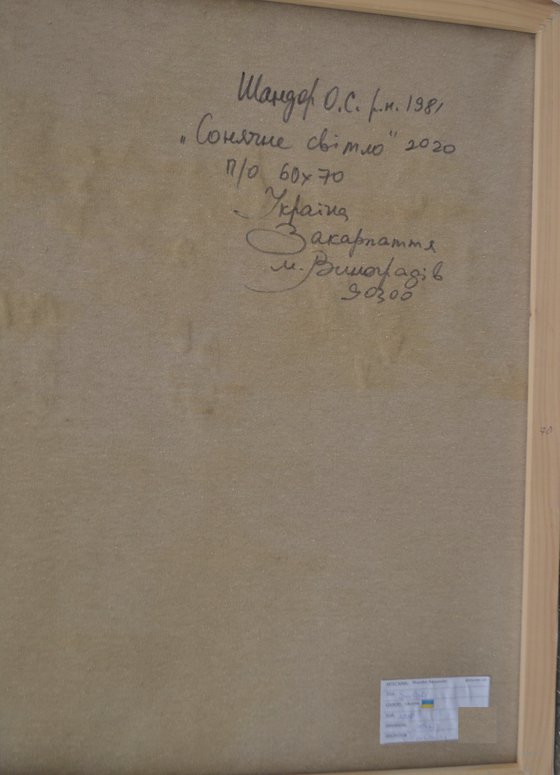 Шандор О.С. р.н. 1981
„Сонячне світло" 2020
п/о 60х70
Україна
Закарпаття
м. Виноградів
90300
70